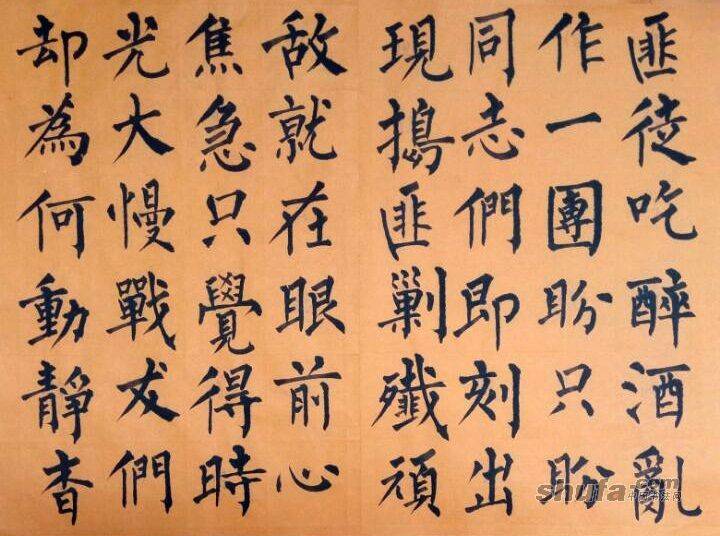 匪徒吃醉酒亂
作一團盼只盼
同志們即刻出
現搗匪剿殲頑
敌就在眼前心
焦急只覺得時
光大慢戰友們
却為何動靜杳
shufa.com
中国书法网